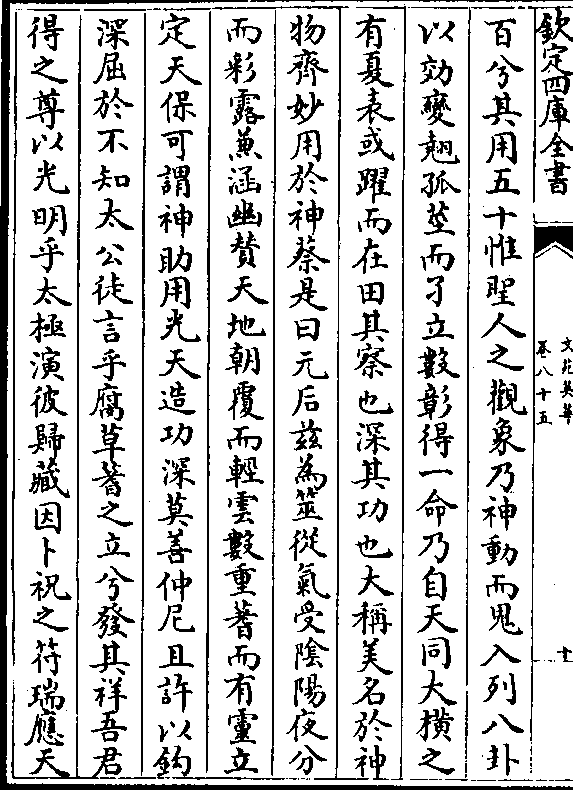 欽定四庫全書
文苑英華
卷八十五
十
百兮其用五十惟聖人之觀象乃神動而鬼入列八卦
以効變翹孤莖而孑立數彰得一命乃自天同大橫之
有夏表或躍而在田其察也深其功也大稱美名於神
物齊妙用於神蔡是曰元后兹為筮從氣受陰陽夜分
而彩露蕉涵幽贊天地朝覆而輕雲數重蓍而有靈立
定天保可謂神助用光天造功深莫善仲尼且許以鈎
深屈於不知太公徒言乎腐草蓍之立兮發其祥吾君
得之尊以光明乎太極演彼歸藏因卜祝之符瑞應天